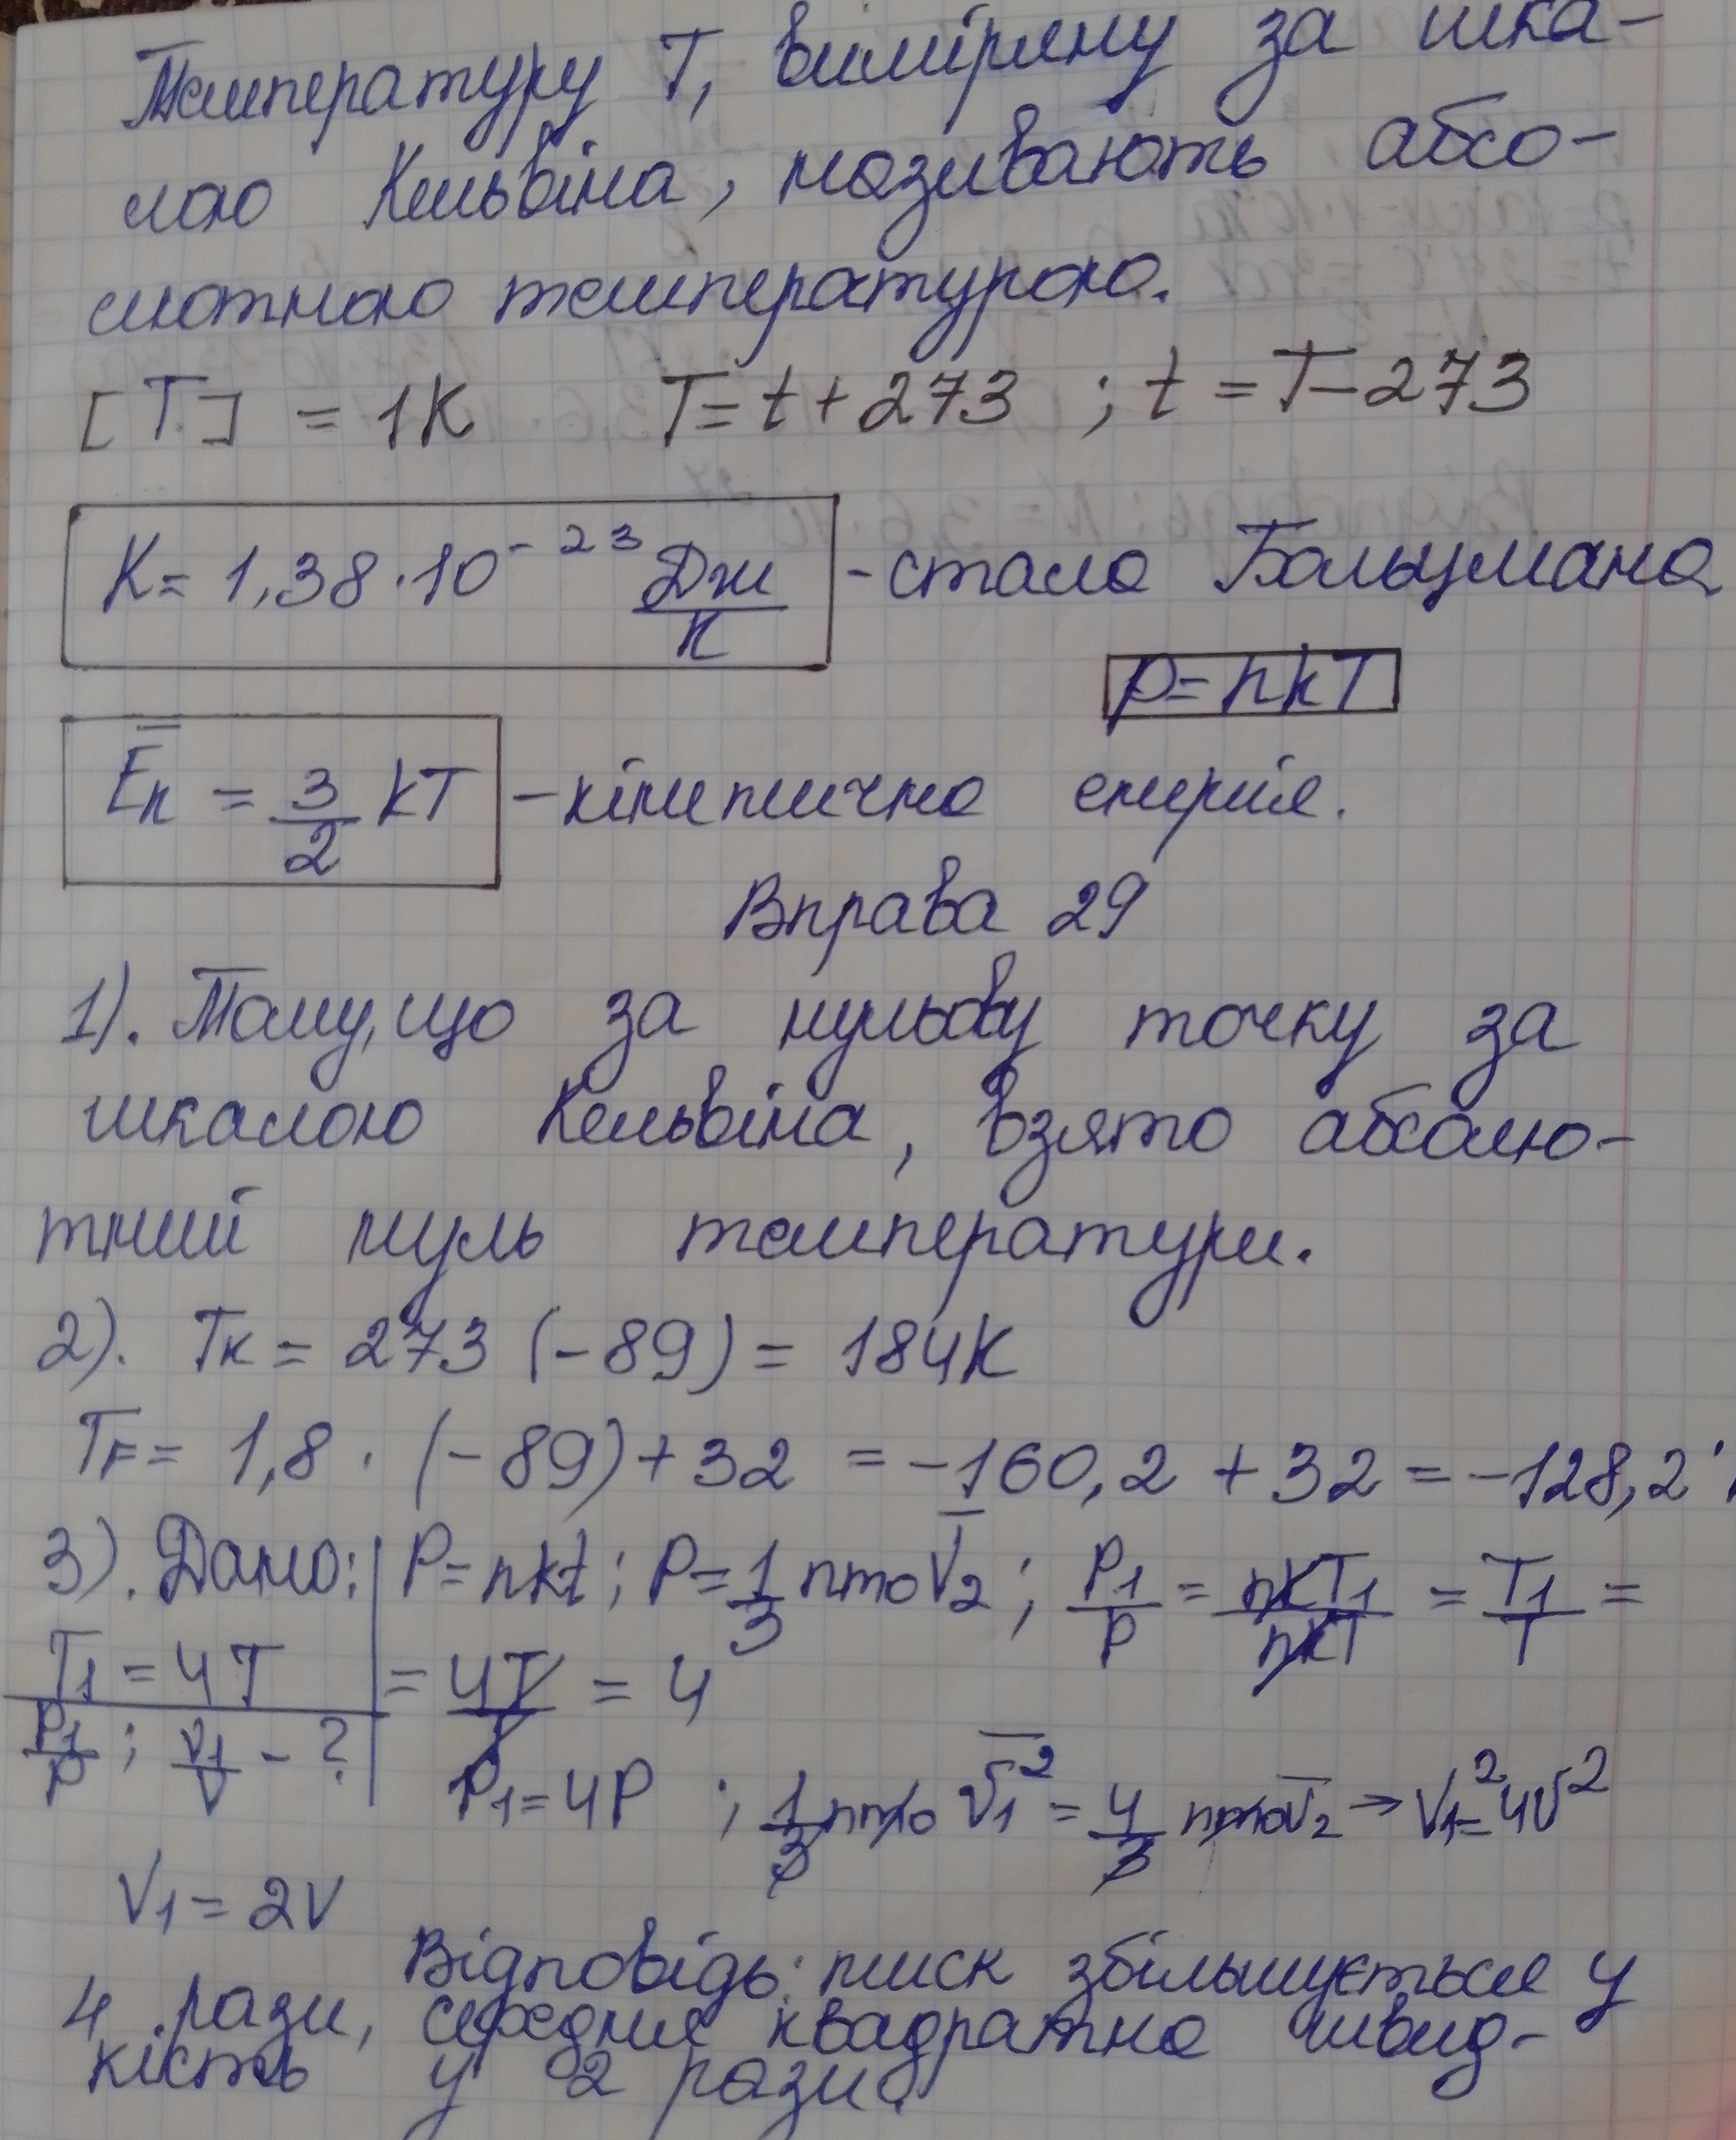 Температуру T, виміряну за шка-
лою Кельвіна, називають абсо-
лютною температурою.
[T] = 1K T = t + 273 ; t = T - 273
K = 1,38 · 10^-23 Дж/К - стала Больцмана
p = nkT
Eк = 3/2 kT - кінетична енергія.
Вправа 29
1). Тому, що за нульову точку за
шкалою Кельвіна, взято абсолю-
тний нуль температури.
2). Tк = 273 (-89) = 184K
TF = 1,8 · (-89) + 32 = -160,2 + 32 = -128,2°
3). Дано: P = nkt ; P = 1/3 nmoV̅2 ; P1/P = nkT1/nkT = T1/T =
T1 = 4T = 4T/T = 4
P1/P ; V1/V - ?
P1 = 4P ; 1/3 nmo V̅1² = 4/3 nmoV̅2 → V1² = 4V²
V1 = 2V
Відповідь: тиск збільшується у
4 рази, середнє квадратна швид-
кість у 2 рази.